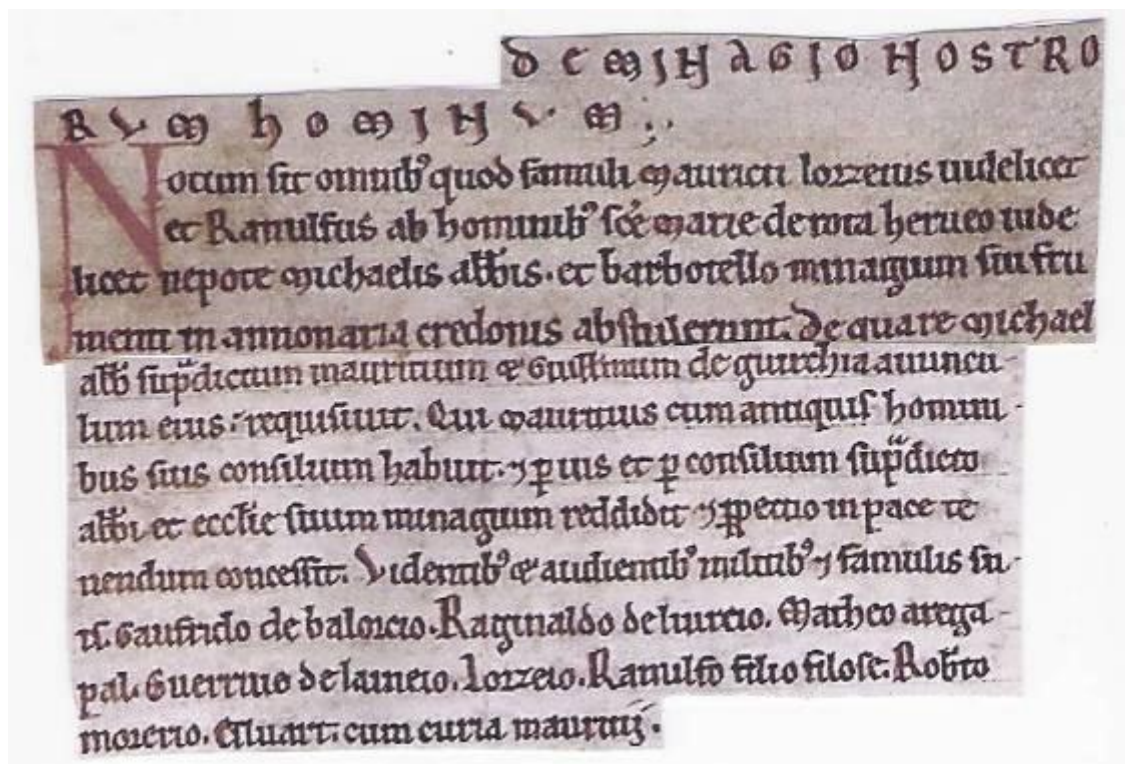 DE MINAGIO NOSTRO
RVM hOMINVM
Notum sit omnib⁹ quod famuli Mauricii lorzeius uidelicet
et Ranulfus ab hominib⁹ sc̄e Marie de rota herueo uide
licet nepote Michaelis abb̄is. et barbotello minagium sui fru
menti in annonaria credonis abstulerunt. De qua re Michael
abb̄ sup̄dictum mauricium & Guiffinum de guirchia auuncu
lum eius: requisiuit. Qui Mauricius cum antiquis homini
bus suis consilium habuit. ⁊ ꝑ uis et ꝑ consilium sup̄dicto
abb̄i et eccl̄ie suum minagium reddidit ⁊ ꝑpetuo in pace te
nendum concessit. Videntib⁹ & audientib⁹ militib⁹ ⁊ famulis su
is. Gaufrido de baloicio. Raginaldo de luircio. Matheo arega
pal. Guerriuo de laineio. lorzeio. Ranulfo filio filose. Rob̄to
morerio. cum curia mauricij.